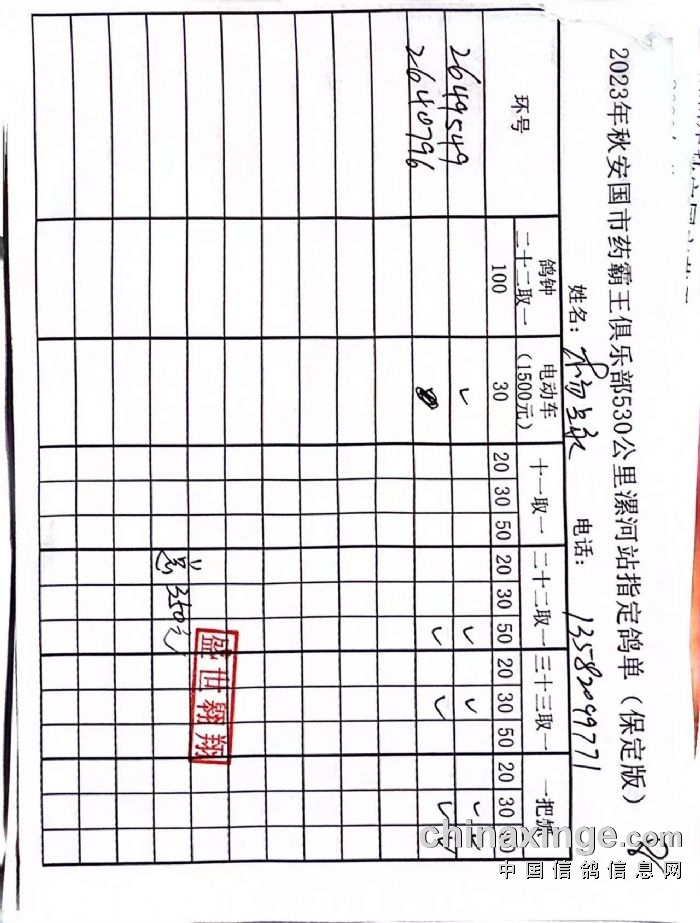 2023年秋安国市药霸王俱乐部530公里漯河站指定鸽单（保定版）
姓名： 电话： 13582099771
环号 鸽钟 二十二取一 电动车（1500元） 十一取一 二十二取一 三十三取一 一把
100 30 20 30 50 20 30 50 20 30 50 20 30
2649549 ✓ ✓ ✓ ✓ ✓
2640796 ✓ ✓ ✓ ✓
350元
盛世翱翔
chinaxinge.com
中国信鸽信息网